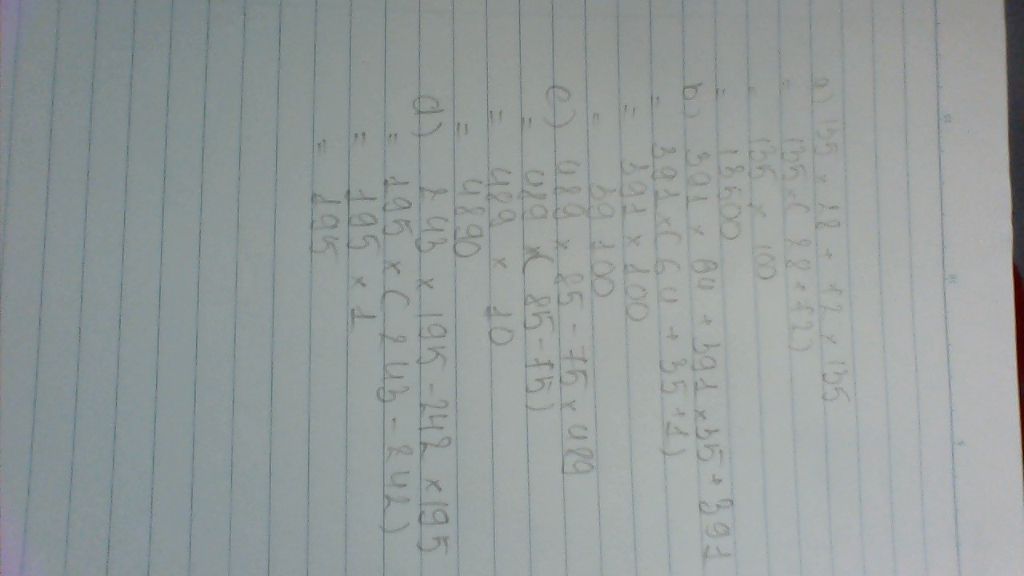 a) 135 × 88 + 12 × 135
= 135 × ( 88 + 12 )
= 135 × 100
= 13500
b) 391 × 64 + 391 × 35 + 391
= 391 × ( 64 + 35 + 1 )
= 391 × 100
= 39 100
c) 489 × 85 - 75 × 489
= 489 × ( 85 - 75 )
= 489 × 10
= 4890
d) 243 × 195 - 242 × 195
= 195 × ( 243 - 242 )
= 195 × 1
= 195